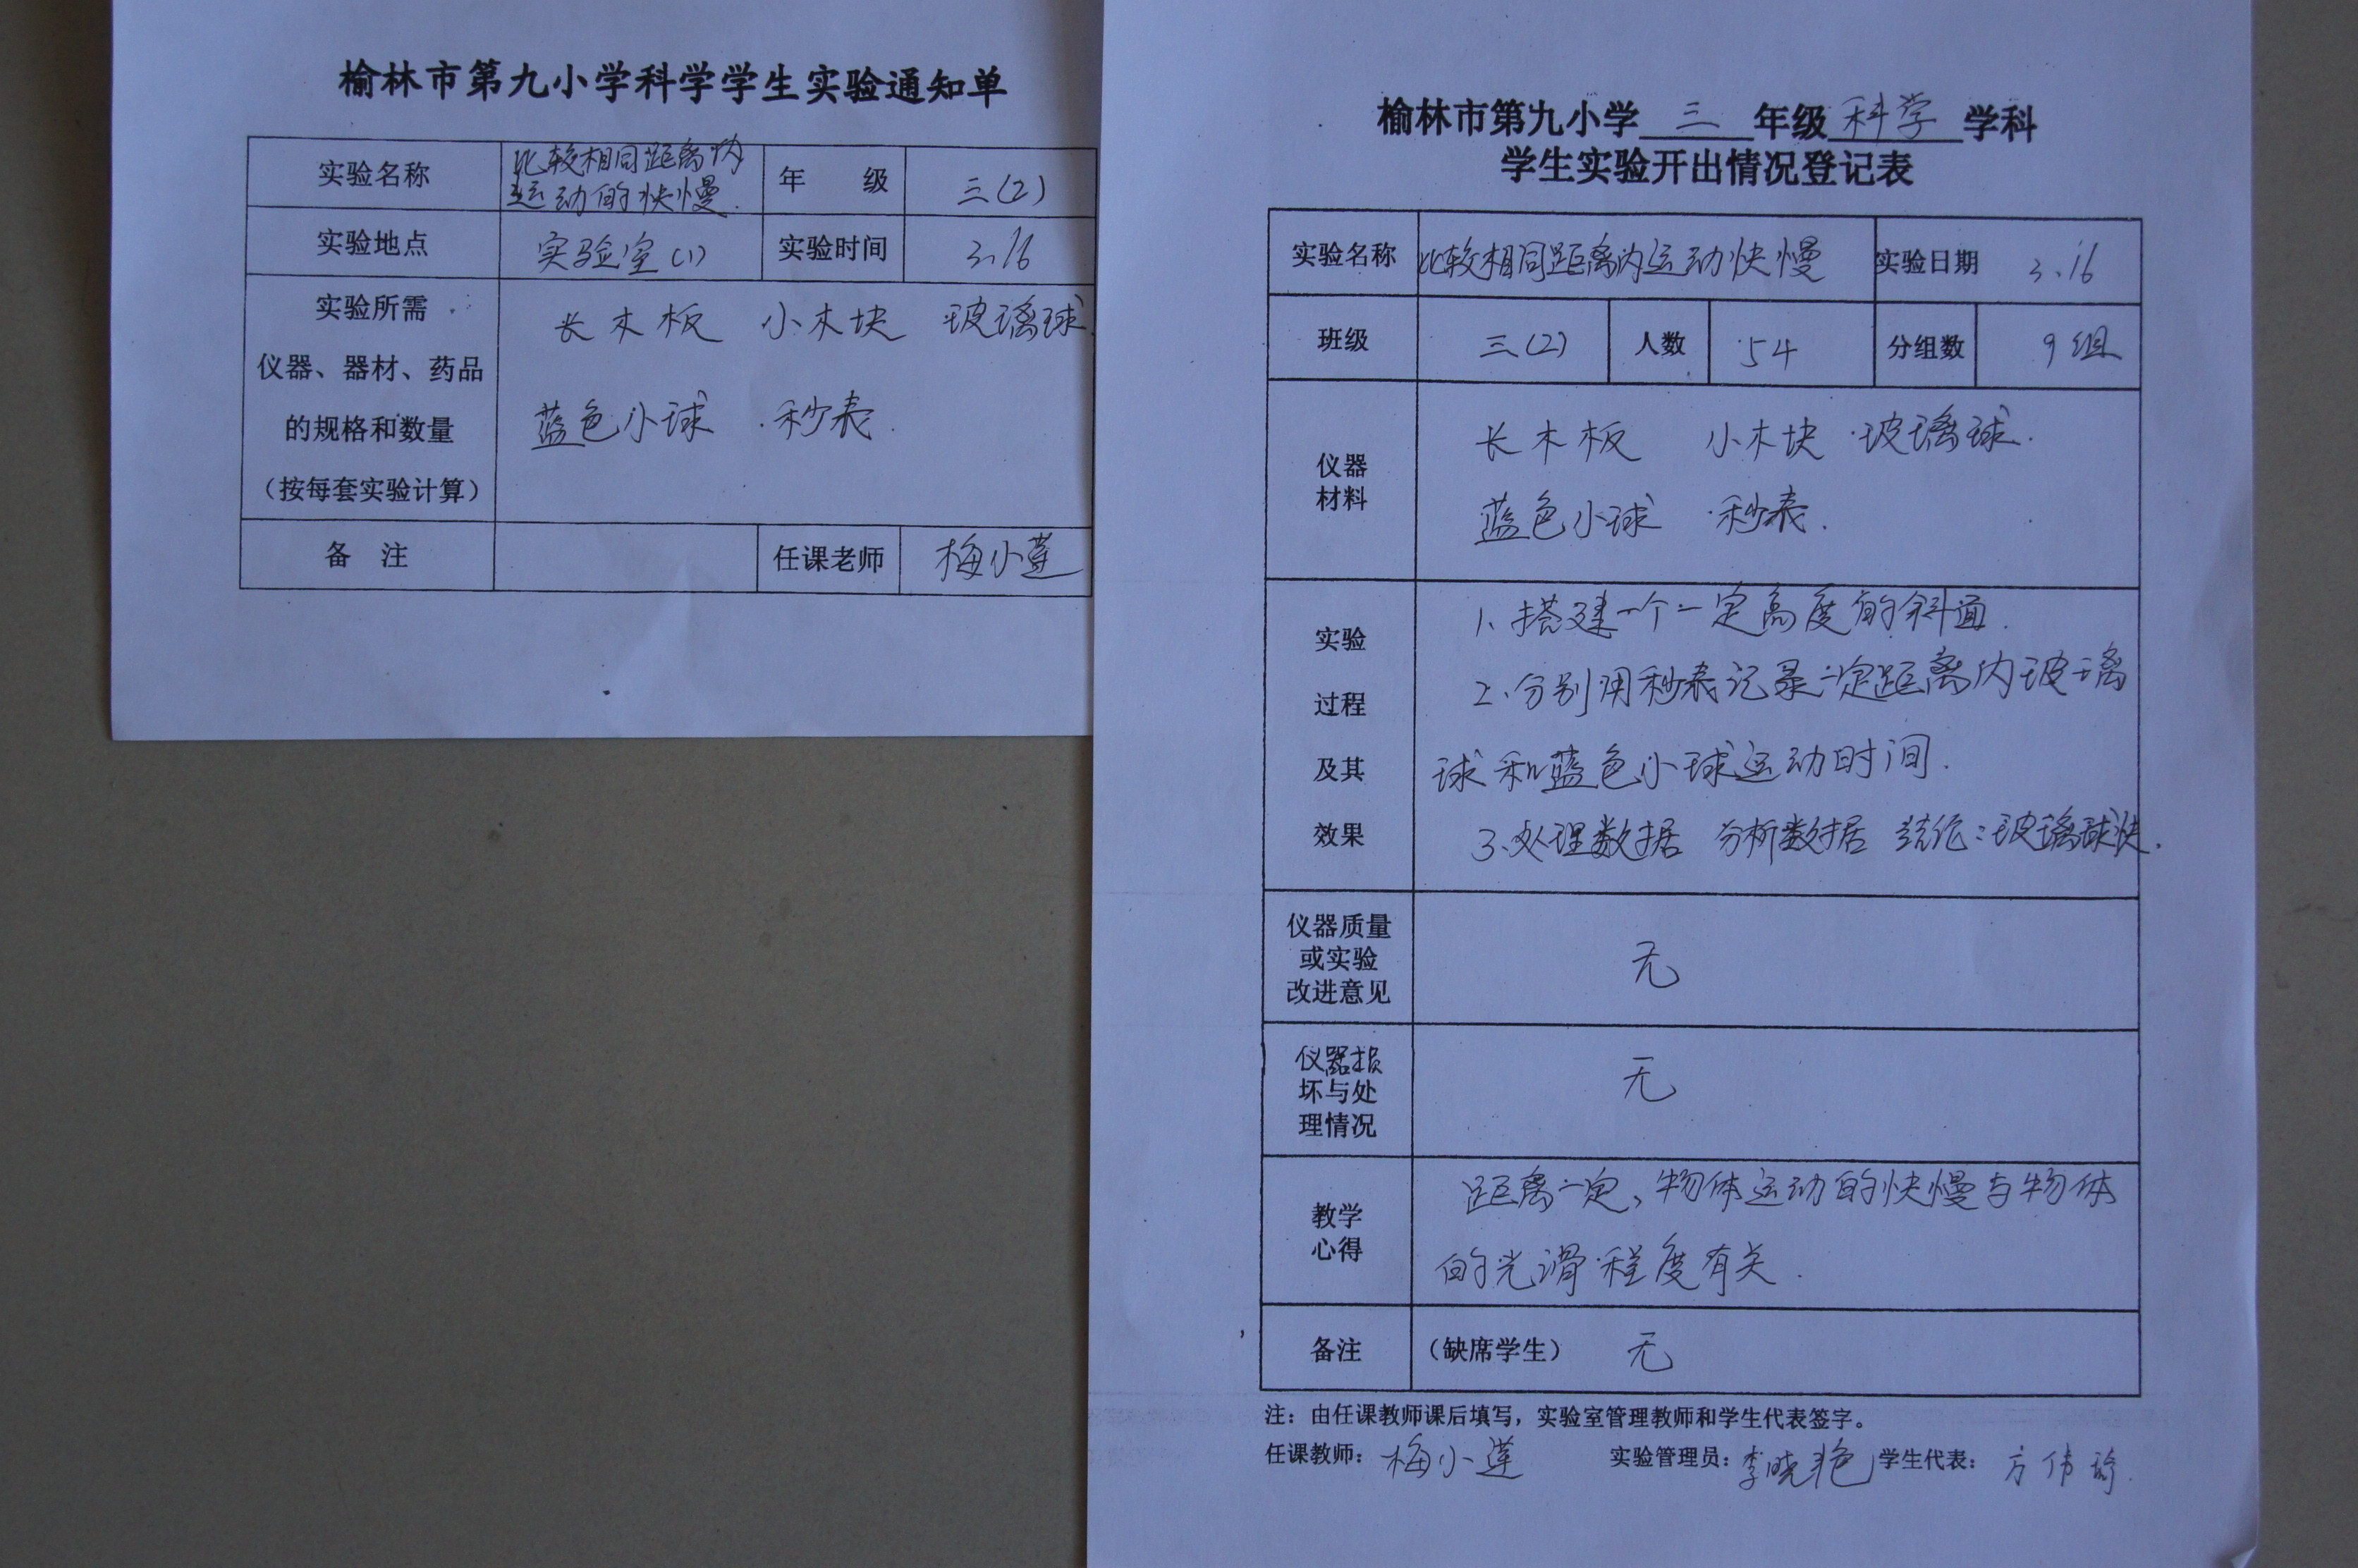 榆林市第九小学科学学生实验通知单
实验名称 比较相同距离内运动的快慢. 年 级 三(2)
实验地点 实验室(1) 实验时间 3.16
实验所需
仪器、器材、药品
的规格和数量
（按每套实验计算）
长木板 小木块 玻璃球.
蓝色小球 秒表.
备 注 任课老师 梅小莲
榆林市第九小学 三 年级 科学 学科
学生实验开出情况登记表
实验名称 比较相同距离内运动快慢 实验日期 3.16
班级 三(2) 人数 54 分组数 9组
仪器
材料
长木板 小木块 玻璃球.
蓝色小球 秒表.
实验
过程
及其
效果
1、搭建一个一定高度的斜面.
2、分别用秒表记录一定距离内玻璃
球和蓝色小球运动时间.
3、处理数据 分析数据 结论：玻璃球快.
仪器质量
或实验
改进意见
无
仪器损
坏与处
理情况
无
教学
心得
距离一定，物体运动的快慢与物体
的光滑程度有关.
备注 （缺席学生） 无
注：由任课教师课后填写，实验室管理教师和学生代表签字。
任课教师：梅小莲 实验管理员：李晓艳 学生代表：方伟